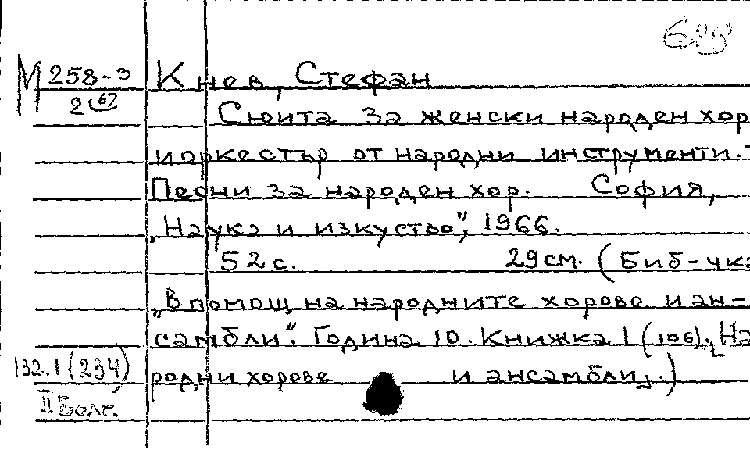 М 258-3
2 67
Кнев, Стефан
Сюита за женски народен хор
и оркестър от народни инструменти.
Песни за народен хор. София,
"Наука и изкуство", 1966.
52 с. 29 см. (Биб-чка
"В помощ на народните хорове и ан-
самбли". Година 10. Книжка 1 (106). На
132.1 (234)
родни хорове и ансамбли.)
II Болг.